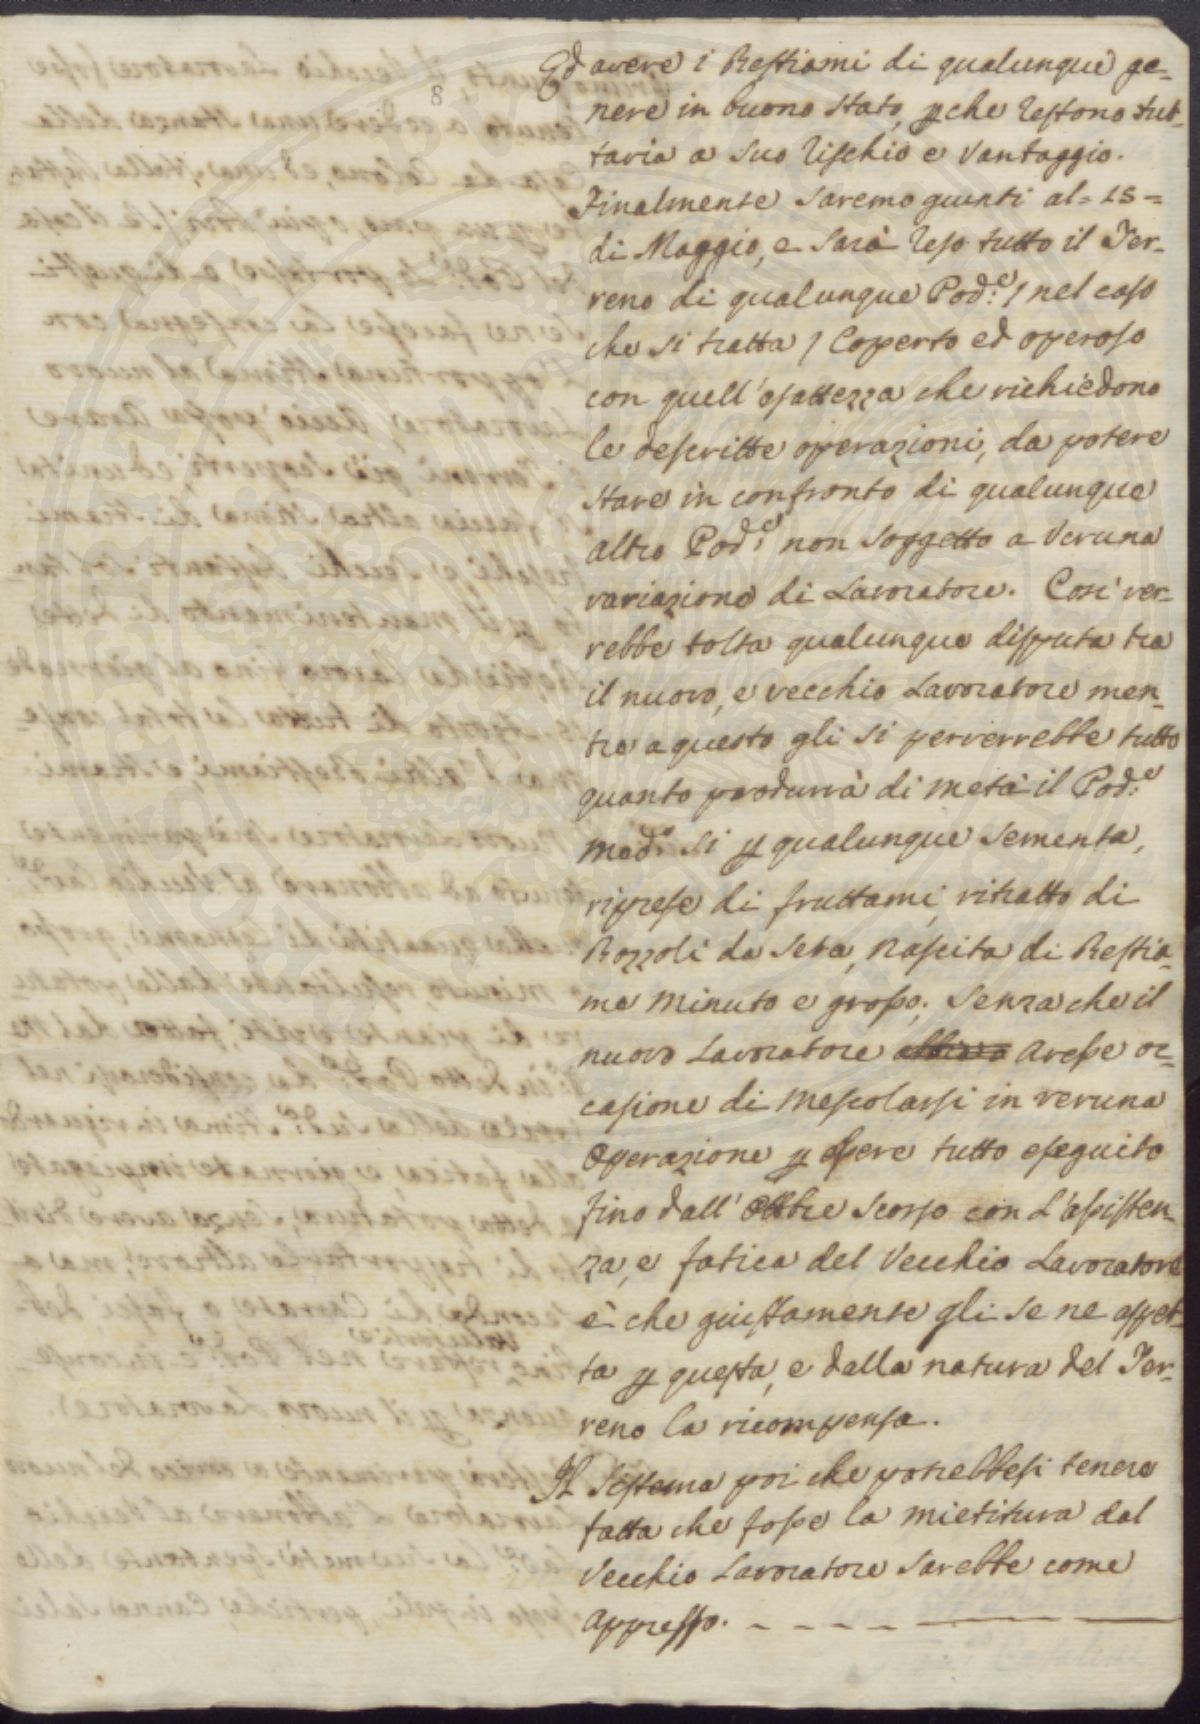 8
Ed avere i Bestiami di qualunque ge=
nere in buono Stato, pche restono tut=
tavia a Suo Rischio e Vantaggio.
Finalmente Saremo giunti al= 15=
di Maggio, e Sarà Reso tutto il Ter=
reno di qualunque Pod:e / nel caso
che Si tratta / Coperto ed operoso
con quell'esattezza che richiedono
le descritte operazioni, da potere
Stare in confronto di qualunque
altro Pod:e non Soggetto a Veruna
variazione di Lavoratore. Così ver=
rebbe tolta qualunque disputa tra
il nuovo, e vecchio Lavoratore men=
tre a questo gli Si perverrebbe tutto
quanto produrrà di metà il Pod:e
med:o Si p qualunque Sementa,
riprese di fruttami, ritratto di
Bozzoli da Seta, Nascita di Bestia=
me Minuto e grosso; Senza che il
nuovo Lavoratore avesse oc=
casione di Mescolarsi in veruna
Operazione p essere tutto eseguito
fino dall' Ottbre Scorso con L'assisten=
za, e fatica del Vecchio Lavoratore
e che giustamente gli Se ne aspet=
ta p questa, e dalla natura del Ter=
reno la ricompensa.
Il Sistema poi che potrebbesi tenere
fatta che fosse la mietitura dal
Vecchio Lavoratore Sarebbe come
appresso. - - - -